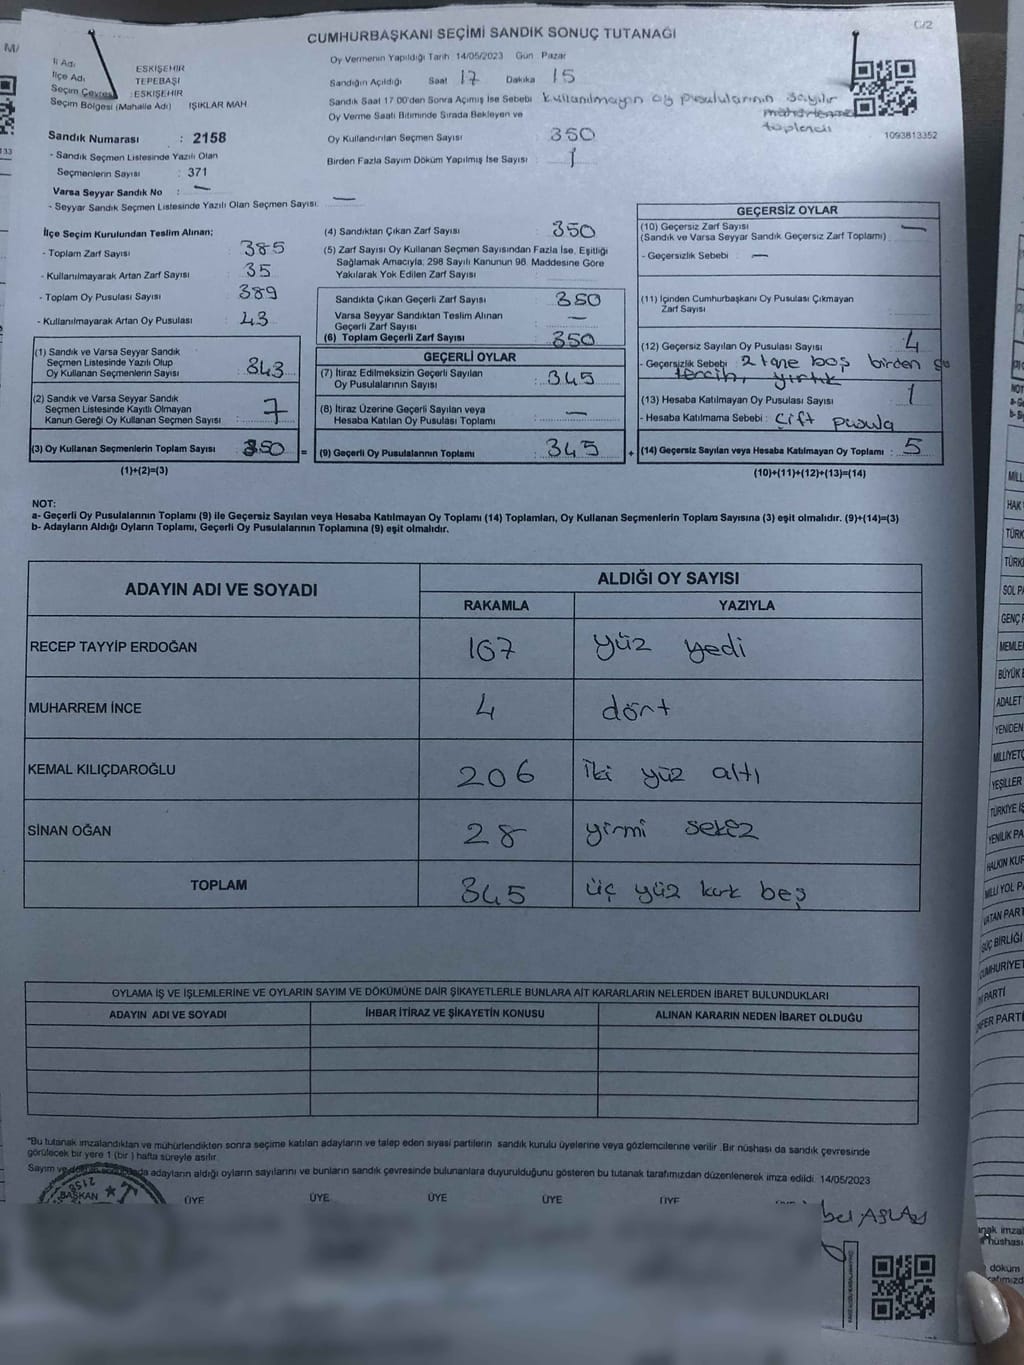 C/2
CUMHURBAŞKANI SEÇİMİ SANDIK SONUÇ TUTANAĞI
İl Adı ESKİŞEHİR
İlçe Adı TEPEBAŞI
Seçim Çevresi : ESKİŞEHİR
Seçim Bölgesi (Mahalle Adı) IŞIKLAR MAH.
Oy Vermenin Yapıldığı Tarih 14/05/2023 Gün Pazar
Sandığın Açıldığı Saat 17 Dakika 15
Sandık Saat 17 00'den Sonra Açımış İse Sebebi kullanılmayan oy pusulularının sayılır mühürlenme toplendi
Oy Verme Saati Bitiminde Sırada Bekleyen ve
Oy Kullandırılan Seçmen Sayısı 350
Birden Fazla Sayım Döküm Yapılmış İse Sayısı 1
1093813352
Sandık Numarası : 2158
- Sandık Seçmen Listesinde Yazılı Olan
Seçmenlerin Sayısı : 371
Varsa Seyyar Sandık No : —
- Seyyar Sandık Seçmen Listesinde Yazılı Olan Seçmen Sayısı: —
İlçe Seçim Kurulundan Teslim Alınan;
- Toplam Zarf Sayısı 385
- Kullanılmayarak Artan Zarf Sayısı 35
- Toplam Oy Pusulası Sayısı 389
- Kullanılmayarak Artan Oy Pusulası 43
(1) Sandık ve Varsa Seyyar Sandık
Seçmen Listesinde Yazılı Olup
Oy Kullanan Seçmenlerin Sayısı : 343
(2) Sandık ve Varsa Seyyar Sandık
Seçmen Listesinde Kayıtlı Olmayan
Kanun Gereği Oy Kullanan Seçmen Sayısı : 7
(3) Oy Kullanan Seçmenlerin Toplam Sayısı : 350 =
(1)+(2)=(3)
(4) Sandıktan Çıkan Zarf Sayısı : 350
(5) Zarf Sayısı Oy Kullanan Seçmen Sayısından Fazla İse, Eşitliği
Sağlamak Amacıyla; 298 Sayılı Kanunun 98. Maddesine Göre
Yakılarak Yok Edilen Zarf Sayısı :
Sandıkta Çıkan Geçerli Zarf Sayısı : 350
Varsa Seyyar Sandıktan Teslim Alınan
Geçerli Zarf Sayısı : —
(6) Toplam Geçerli Zarf Sayısı : 350
GEÇERLİ OYLAR
(7) İtiraz Edilmeksizin Geçerli Sayılan
Oy Pusulalarının Sayısı : 345
(8) İtiraz Üzerine Geçerli Sayılan veya
Hesaba Katılan Oy Pusulası Toplamı : —
(9) Geçerli Oy Pusulalarının Toplamı : 345 +
GEÇERSİZ OYLAR
(10) Geçersiz Zarf Sayısı —
(Sandık ve Varsa Seyyar Sandık Geçersiz Zarf Toplamı) :
- Geçersizlik Sebebi : —
(11) İçinden Cumhurbaşkanı Oy Pusulası Çıkmayan
Zarf Sayısı :
(12) Geçersiz Sayılan Oy Pusulası Sayısı : 4
- Geçersizlik Sebebi : 2 tane boş birden
tercih, yırtık
(13) Hesaba Katılmayan Oy Pusulası Sayısı : 1
- Hesaba Katılmama Sebebi : Çift pusula
(14) Geçersiz Sayılan veya Hesaba Katılmayan Oy Toplamı : 5
(10)+(11)+(12)+(13)=(14)
NOT:
a- Geçerli Oy Pusulalarının Toplamı (9) ile Geçersiz Sayılan veya Hesaba Katılmayan Oy Toplamı (14) Toplamları, Oy Kullanan Seçmenlerin Toplam Sayısına (3) eşit olmalıdır. (9)+(14)=(3)
b- Adayların Aldığı Oyların Toplamı, Geçerli Oy Pusulalarının Toplamına (9) eşit olmalıdır.
ADAYIN ADI VE SOYADI ALDIĞI OY SAYISI
RAKAMLA YAZIYLA
RECEP TAYYİP ERDOĞAN 107 yüz yedi
MUHARREM İNCE 4 dört
KEMAL KILIÇDAROĞLU 206 İki yüz altı
SİNAN OĞAN 28 yirmi sekiz
TOPLAM 345 üç yüz kırk beş
OYLAMA İŞ VE İŞLEMLERİNE VE OYLARIN SAYIM VE DÖKÜMÜNE DAİR ŞİKAYETLERLE BUNLARA AİT KARARLARIN NELERDEN İBARET BULUNDUKLARI
ADAYIN ADI VE SOYADI İHBAR İTİRAZ VE ŞİKAYETİN KONUSU ALINAN KARARIN NEDEN İBARET OLDUĞU
*Bu tutanak imzalandıktan ve mühürlendikten sonra seçime katılan adayların ve talep eden siyasi partilerin sandık kurulu üyelerine veya gözlemcilerine verilir. Bir nüshası da sandık çevresinde
görülecek bir yere 1 (bir ) hafta süreyle asılır.
Sayım ve adayların aldığı oyların sayılarını ve bunların sandık çevresinde bulunanlara duyurulduğunu gösteren bu tutanak tarafımızdan düzenlenerek imza edildi. 14/05/2023
2158
BAŞKAN ÜYE ÜYE ÜYE ÜYE ÜYE
bel ASLAY
MİLL
HAK
TÜRK
TÜRKİ
SOL PA
GENÇ P
MEMLE
BÜYÜK
ADALET
YENİDEN
MİLLİYETÇ
YEŞİLLER
TÜRKİYE İŞ
YENİLİK PA
HALKIN KUR
MİLLİ YOL PA
VATAN PART
GÜÇ BİRLİĞİ
CUMHURİYET
PARTİ
FER PARTİ
nak imzal
nüshası
döküm
rafımızd